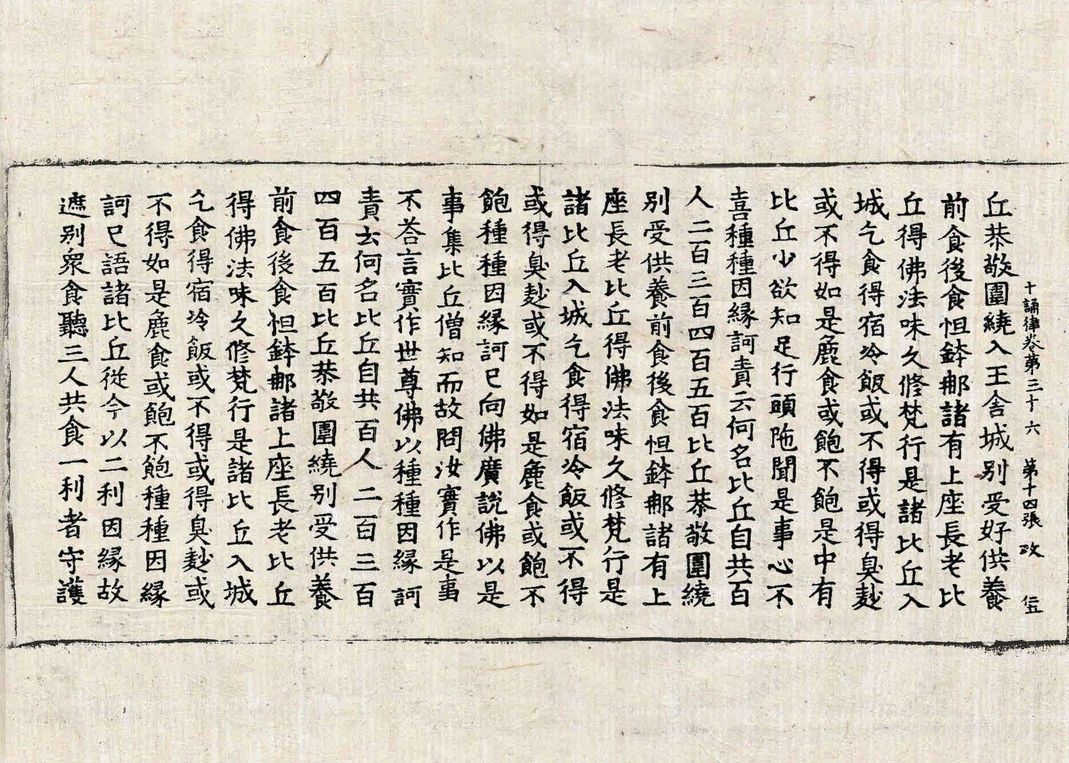 十誦律卷第三十六 第十四張 攻
丘恭敬圍繞入王舍城別受好供養
前食後食怛鉢那諸有上座長老比
丘得佛法味久修梵行是諸比丘入
城乞食得宿冷飯或不得或得臭麨
或不得如是麁食或飽不飽是中有
比丘少欲知足行頭陁聞是事心不
喜種種因縁訶責云何名比丘自共百
人二百三百四百五百比丘恭敬圍繞
別受供養前食後食怛鉢那諸有上
座長老比丘得佛法味久修梵行是
諸比丘入城乞食得宿冷飯或不得
或得臭麨或不得如是麁食或飽不
飽種種因縁訶已向佛廣說佛以是
事集比丘僧知而故問汝實作是事
不荅言實作世尊佛以種種因縁訶
責云何名比丘自共百人二百三百
四百五百比丘恭敬圍繞別受供養
前食後食怛鉢那諸上座長老比丘
得佛法味久修梵行是諸比丘入城
乞食得宿冷飯或不得或得臭麨或
不得如是麁食或飽不飽種種因縁
訶已語諸比丘從今以二利因縁故
遮別衆食聽三人共食一利者守護